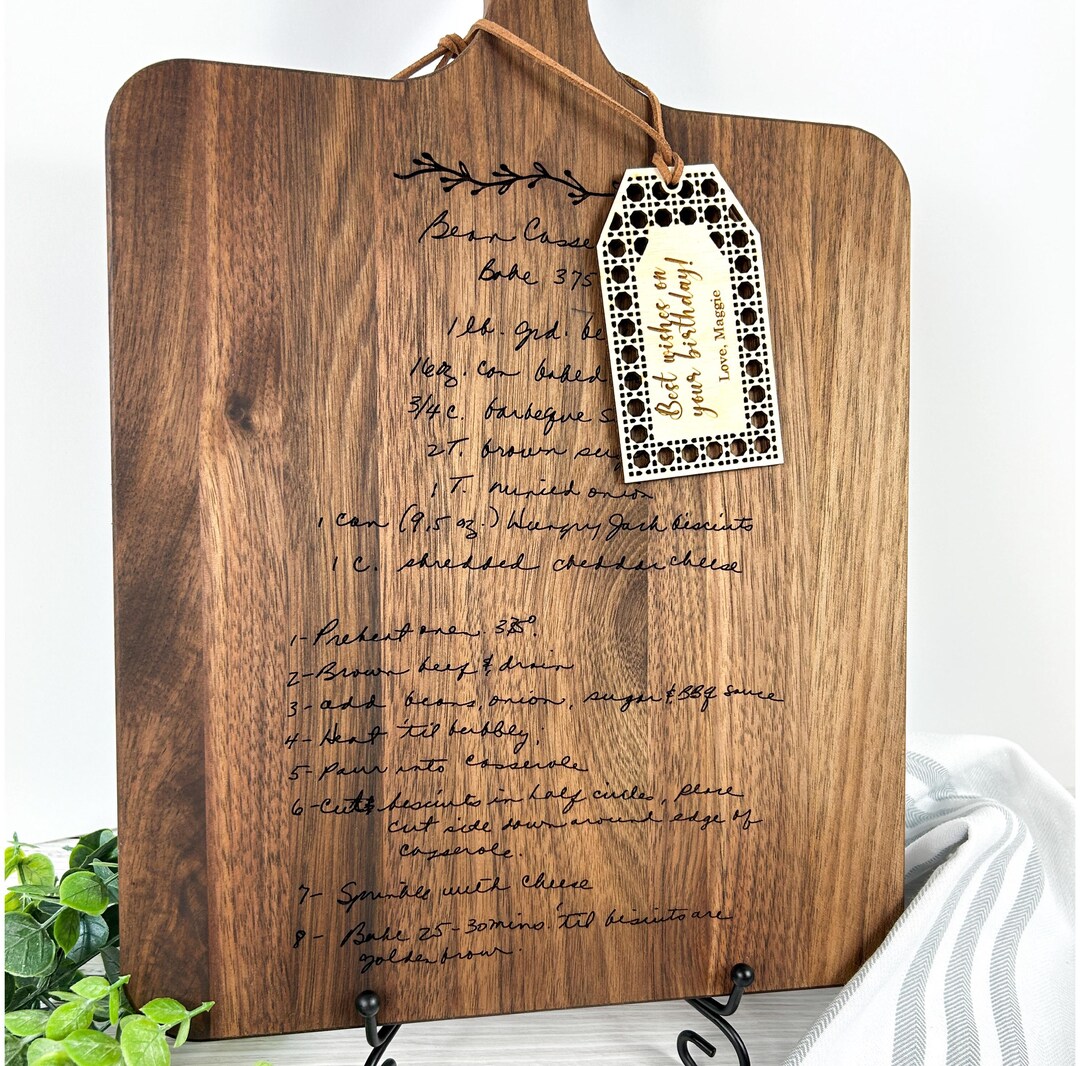 Bean Casse
Bake 375
1 lb. grd. be
16 oz. can baked
3/4 c. barbeque s
2 T. brown sug
1 T. minced onion
1 can (9.5 oz.) Hungry Jack biscuits
1 c. shredded cheddar cheese
1- Preheat oven 375°.
2- Brown beef & drain
3- add beans, onion, sugar & BBQ sauce
4- Heat 'til bubbly.
5- Pour into casserole
6- Cut biscuits in half circles, place
cut side down around edge of
casserole.
7- Sprinkle with cheese
8- Bake 25-30 mins. 'til biscuits are
golden brown.
Best wishes on
your birthday!
Love, Maggie